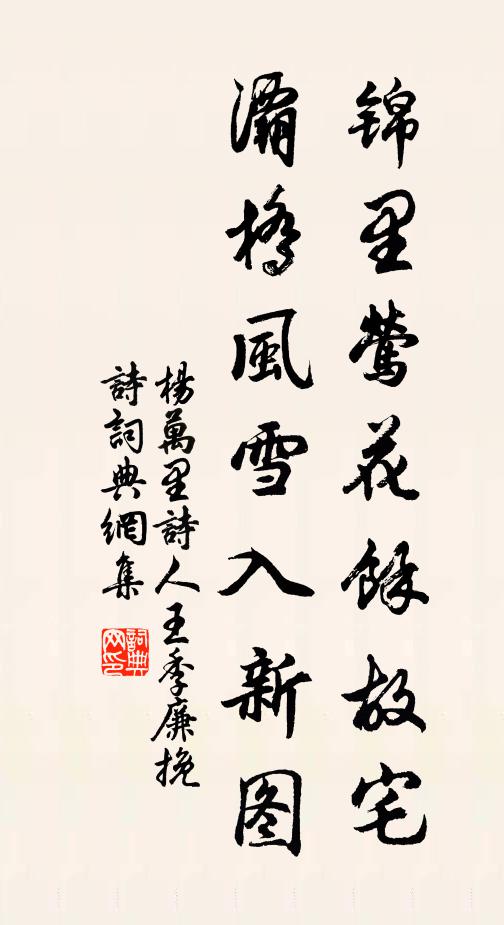 錦里鶯花餘故宅
灞橋風雪入新图
楊萬里詩人王季廉挽
詩詞典網集
詞典网印